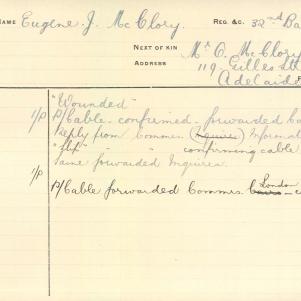 NAME Eugene. J. McClory. REG. &C. 32nd Ba
NEXT OF KIN Mr O. McClory
ADDRESS 119 Gilles St
Adelaide
"Wounded"
1/p P/Cable - confirmed - forwarded Ca
Reply from Commrs (Inquire) Informat
" - " confirming cable
Same forwarded Inquirer.
1/p P/Cable forwarded Commrs London - c